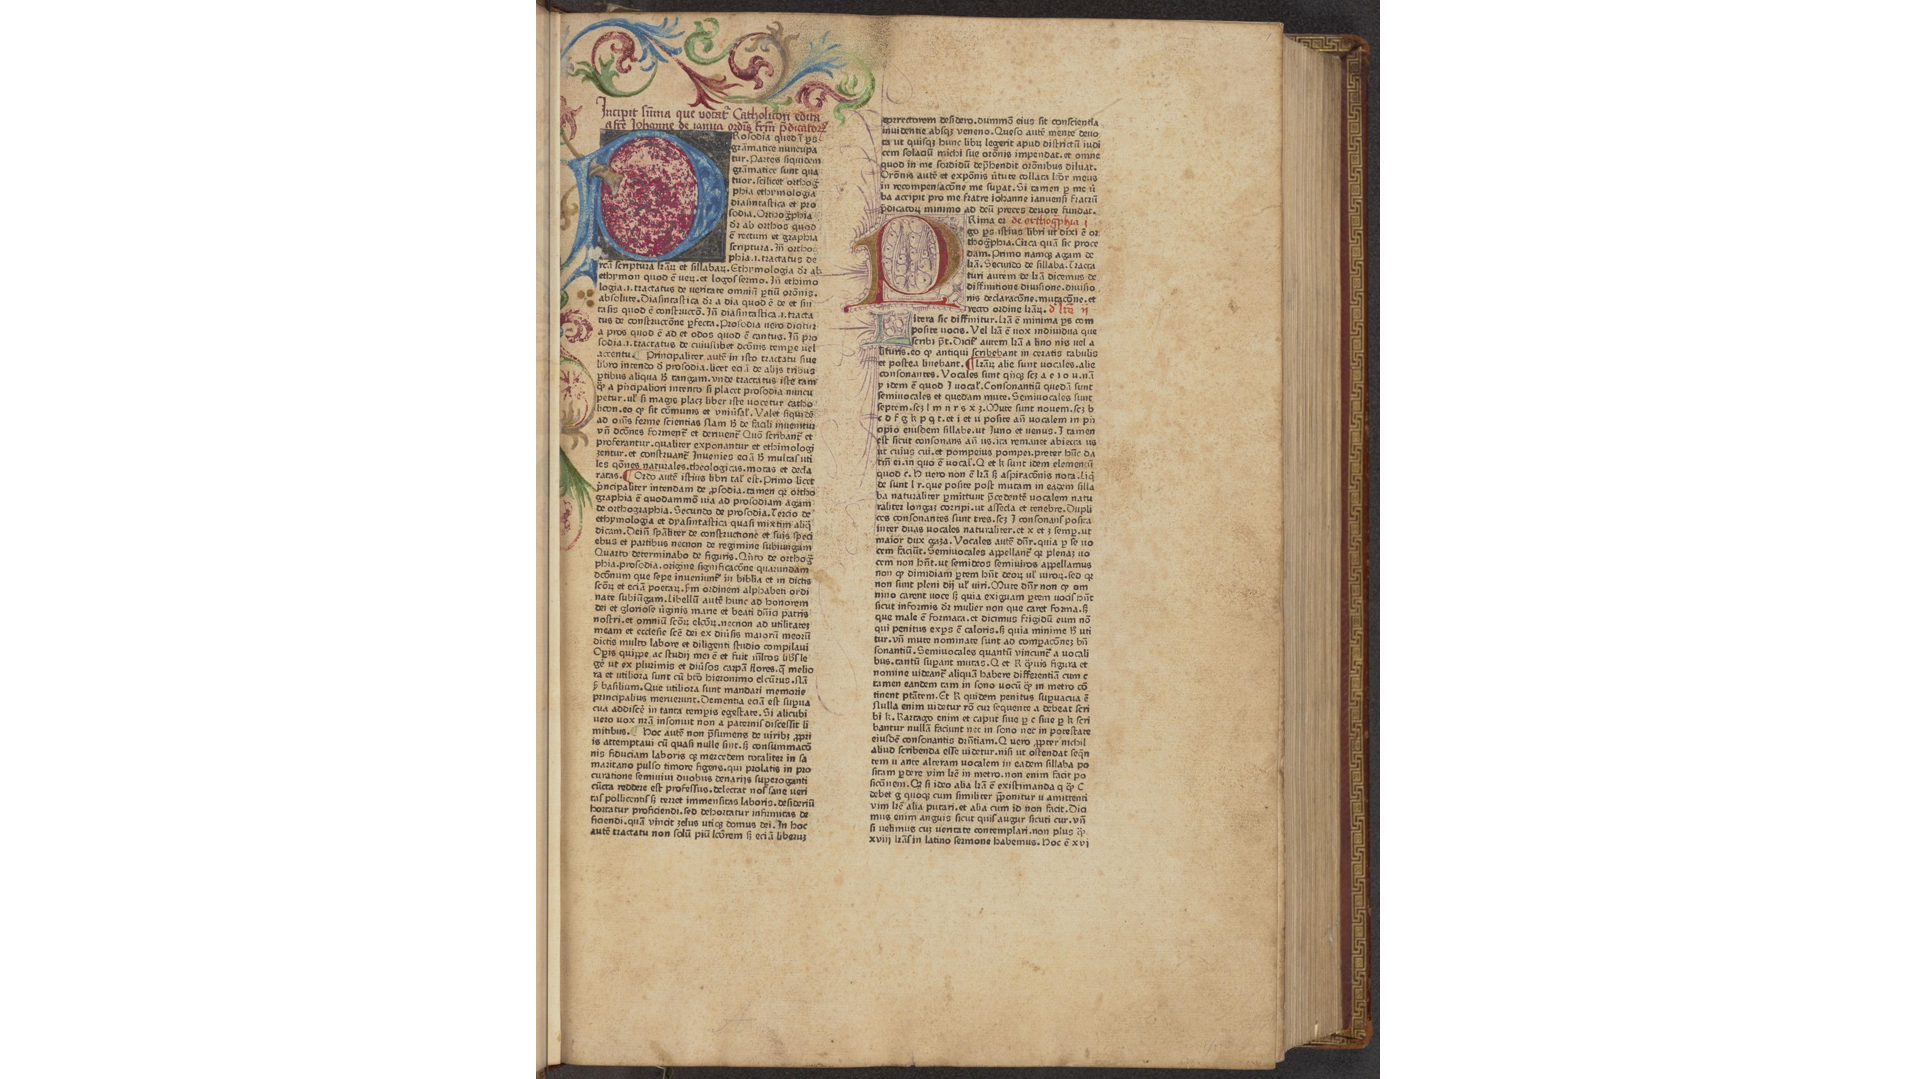 Incipit sūma que vocat᷑ Catholicon edita
a fr̄e Iohanne de ianua ordīs fr̄m p̄dicatoꝝ
Rosodia quedā ꝑs
grāmatice nuncupa
tur. Partes siquidem
grāmatice sunt qua
tuor. scilicet orthog̃
phia ethymologia
diasintastica et pro
sodia. Orthog̃phia
dr̄ ab orthos quod
ē rectum et graphia
scriptura. Iñ ortho
phia.i.tractatus de
rcā scriptura lr̄aꝝ et sillabaꝝ. Ethymologia dr̄ ab
ethymon quod ē veꝝ. et logos sermo. Iñ ethimo
logia.i.tractatus de veritate omniū ꝑtiū orōnis.
absolute. Diasintastica dr̄ a dia quod ē de et sin
tasis quod ē constructō. Iñ diasintastica.i.tracta
tus de constructōne ꝑfecta. Prosodia uero dicitur
a pros quod ē ad et odos quod ē cantus. Iñ pro
sodia.i.tractatus de cuiuslibet dictōnis tempe uel
accentu. Principaliter autē in isto tractatu siue
libro intendo ð prosodia. licet eciā de alijs tribus
ꝑtibus aliqua ħ tangam. vnde tractatus iste tam
q̃ a pñcipaliori intento si placet prosodia nuncu
petur. ul̄ si magis placꝫ liber iste uocetur catho
licon. eo ꝙ sit cōmunis et vniuſal̄. Valet siquidē
ad oīns ferme scientias Nam ħ de facili inuenitur
vñ dcōnes forment᷑ et deriuent᷑ Quō scribant᷑ et
proferantur. qualiter exponantur et ethimologi
zentur. et construant᷑ Inuenies eciā ħ multas uti
les qōnes naturales. theologicas. motas et decla
ratas. Ordo autē istius libri tal̄ est. Primo licet
pñcipaliter intendam de ꝓsodia. tamen qꝛ ortho
graphia ē quodammō uia ad prosodiam agam
de orthographia. Secundo de prosodia. Tercio de
ethymologia et dyasintastica quasi mixtim aliq̄
dicam. Deīn sp̄aliter de constructione et suis speci
ebus et partibus necnon de regimine subiungam
Quarto determinabo de figuris. Qñto de orthog̃
phia. prosodia. origine significacōne quarundam
dcōnum que sepe inueniunt᷑ in biblia et in dictis
scōꝝ et eciā poetaꝝ. ꝑm ordinem alphabeti ordi
nate subiūgam. Libellū autē hunc ad honorem
dei et gloriose ūginis marie et beati dn̄ici patris
nostri. et omniū scōꝝ elcōꝝ. necnon ad utilitatem
meam et ecclesie scē dei ex diūsis maiorū meorū
dictis multo labore et diligenti studio compilaui
Oꝑis quippe ac studij mei ē et fuit ml̄tos libros le
gē ut ex plurimis et diūsos carpā flores. q̄ melio
ra et utiliora sunt cū bt̄o hieronimo elcūrus. Nā
ꝑ basilium. Que utiliora sunt mandari memorie
principalius meruerunt. Dementia eciā est supua
cua addiscē in tanta tempis egestate. Si alicubi
uero uox nr̄a insonuit non a paternis discessit li
mitibus. Hoc autē non p̄sumens de uiribꝫ ꝓpri
is attemptaui cū quasi nulle sint. sꝫ consummacō
nis fiduciam laboris qꝫ mercedem totaliter in sa
maritano pulso timore figens. qui prolatis in pro
curatione semiuiui duobus denarijs superoganti
cūcta reddere est professus. delectat nos sane veri
tas pollicentis sꝫ terret immensitas laboris. desideriū
hortatur proficiendi. sed dehortatur infirmitas de
ficiendi. quā vincit zelus utiqꝫ domus dei. In hoc
autē tractatu non solū piū lcōrem sꝫ eciā liberuꝫ
correctorem desidero. dummō eius sit conscientia
inuidentie absqꝫ veneno. Queso autē mente deuo
ta ut quisqꝫ hunc librū legerit apud districtū iudi
cem solaciū michi sue orōnis impendat. et omne
quod in me sordidū dep̄hendit orōnibus diluat.
Orōnis autē et expōnis ūtute collata lcōr meus
in recompensacōne me supat. Si tamen ꝑ me ū
ba accipit pro me fratre Iohanne ianuensi fratrū
p̄dicatoꝝ minimo ad deū preces deuote fundat.
Rima er de orthogphia i
go ꝑs istius libri ut dixi ē or
thog̃phia. Circa quā sic proce
dam. Primo namqꝫ agam de
lr̄ā. Secundo de sillaba. Tracta
turi autem de lr̄ā dicemus de
diffinitione diuisione. diuisio
nis declaracōne. mutacōne. et
recto ordine lr̄aꝝ. ð lr̄ā ij
itera sic diffinitur. Lr̄ā ē minima ꝑs com
posite uocis. Vel lr̄ā ē uox indiuidua que
scribi pt̄. Dicit᷑ autem lr̄ā a lino nis uel a
lituris. eo ꝙ antiqui scribebant in ceratis tabulis
et postea linebant. Lr̄aꝝ alie sunt vocales. alie
consonantes. Vocales sunt qn̄qꝫ scꝫ a e i o u. nā
y idem ē quod I vocal̄. Consonantiū quedā sunt
semiuocales et quedam mute. Semiuocales sunt
septem. scꝫ l m n r s x z. Mute sunt nouem. scꝫ b
c d f g k p q t. et i et u posite añ vocalem in pñ
cipio eiusdem sillabe. ut Iuno et venus. I tamen
est sicut consonans añ us. ita remanet abiecta us
ut cuius cui. et pompeius pompei. preter hūc da
tm̄ ei. in quo ē uocal̄. Q et k sunt idem elementū
quod c. H vero non ē lr̄ā sꝫ aspiracōnis nota. Liq̄
de sunt l r. que posite post mutam in eadem silla
ba naturaliter ꝑmittunt p̄cedentē vocalem natu
raliter longaꝫ corripi. ut assecla et tenebre. Dupli
ces consonantes sunt tres. scꝫ I consonans posita
inter duas vocales naturaliter. et x et z semꝑ. ut
maior dux gaza. Vocales autē dn̄r. quia ꝑ se uo
cem faciūt. Semiuocales appellant᷑ qꝛ plenaꝫ uo
cem non hn̄t. ut semideos semiuiros appellamus
non ꝙ dimidiam ꝑtem hn̄t deoꝝ ul̄ uiroꝝ. sed qꝛ
non sunt pleni dij ul̄ uiri. Mute dn̄r non ꝙ om
nino carent uoce sꝫ quia exiguam ꝑtem uocis hn̄t
sicut informis dr̄ mulier non que caret forma. sꝫ
que male ē formata. et dicimus frigidū eum nō
qui penitus exꝑs ē caloris. sꝫ quia minime ħ uti
tur. vñ mute nominate sunt ad compacōneꝫ bn̄
sonantiū. Semiuocales quantū vincunt᷑ a uocali
bus. tantū supant mutas. Q et K q̄uis figura et
nomine uideant᷑ aliquā habere differentiā cum c
tamen eandem tam in sono uocū q̄ in metro cō
tinent ptātem. Et K quidem penitus supuacua ē
Nulla enim uidetur rō cur sequente a debeat scri
bi k. Kartago enim et caput siue ꝑ c siue ꝑ k scri
bantur nullā faciunt nec in sono nec in potestate
eiusdē consonantis drn̄tiam. Q uero ꝓpter nichil
aliud scribenda esse uidetur. nisi ut ostendat seqn̄
tem u ante alteram vocalem in eadem sillaba po
sitam ꝑdere vim lr̄e in metro. non enim facit po
sicōnem. Qꝫ si ideo alia lr̄ā ē existimanda q q̄ C
debet g quoqꝫ cum similiter p̄ponitur u amittenti
vim lr̄e alia putari. et alia cum id non facit. Dici
mus enim anguis sicut quis augur sicuti cur. vñ
si uelimus cuꝫ ueritate contemplari. non plus q̄
xviij lr̄as in latino sermone habemus. Hoc ē xvi